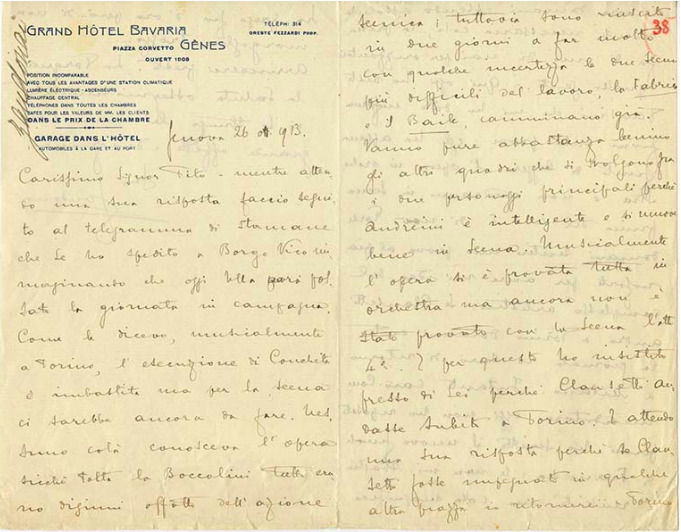 GRAND HÔTEL BAVARIA
PIAZZA CORVETTO GÊNES
OUVERT 1908
TÉLÉPH: 314
ORESTE FEZZARDI PROP.
POSITION INCOMPARABLE
AVEC TOUS LES AVANTAGES D'UNE STATION CLIMATIQUE
LUMIÈRE ÉLECTRIQUE - ASCENSEURS
CHAUFFAGE CENTRAL
TÉLÉPHONES DANS TOUTES LES CHAMBRES
SAFES POUR LES VALEURS DE MM. LES CLIENTS
DANS LE PRIX DE LA CHAMBRE
GARAGE DANS L'HÔTEL
AUTOMOBILES À LA GARE ET AU PORT
Genova 26 913.
Carissimo Signor Tito - mentre atten-
do una sua risposta faccio segui-
to al telegramma di stamane
che Le ho spedito a Borgo Vico im-
maginando che oggi Ella
la giornata in campagna.
Come le dicevo, musicalmente
a Torino, l'esecuzione di Conchita
è imbastita ma per la scena
ci sarebbe ancora da fare. Nes-
suno colà conosceva l'opera
sicchè tolta la Boccolini tutti era-
no digiuni affatto dell'azione
38
scenica; tuttavia sono riuscito
in due giorni a far molto
con qualche incertezza le due scene
più difficili del lavoro, la Fabrica
il Baile camminano già.
Vanno pure abbastanza benino
gli altri quadri che si svolgono fra
i due personaggi principali perchè
Andreini è intelligente e si muove
bene in scena. Musicalmente
l'opera si è provata tutta in
orchestra ma ancora non è
stato provato con la scena l'atto
4º. E per questo ho insistito
presso di Lei perchè Clausetti an-
dasse subito a Torino. E attendo
una sua risposta perchè se Clau-
setti fosse impegnato in qualche
altra piazza io ritornerei a Torino